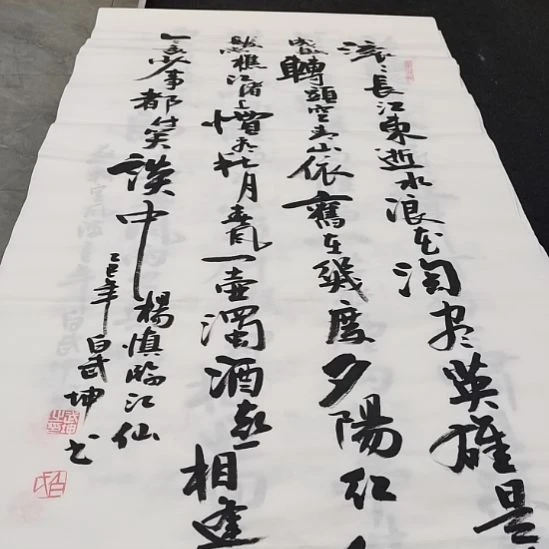 滚滚長江東逝水浪花淘盡英雄是
成敗轉頭空青山依舊在幾度夕陽紅
漁樵江渚上慣看秋月春風一壺濁酒喜相逢
古今多少事都付笑談中
楊慎臨江仙
乙巳年白武坤书